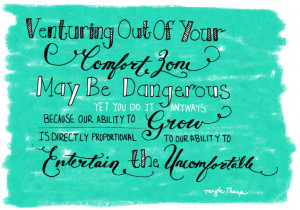 Venturing Out Of Your
Comfort Zone
May Be Dangerous
YET YOU DO IT ANYWAYS
BECAUSE OUR ABILITY TO Grow
IS DIRECTLY PROPORTIONAL TO OUR ABILITY TO
Entertain the Uncomfortable
Twyla Tharp